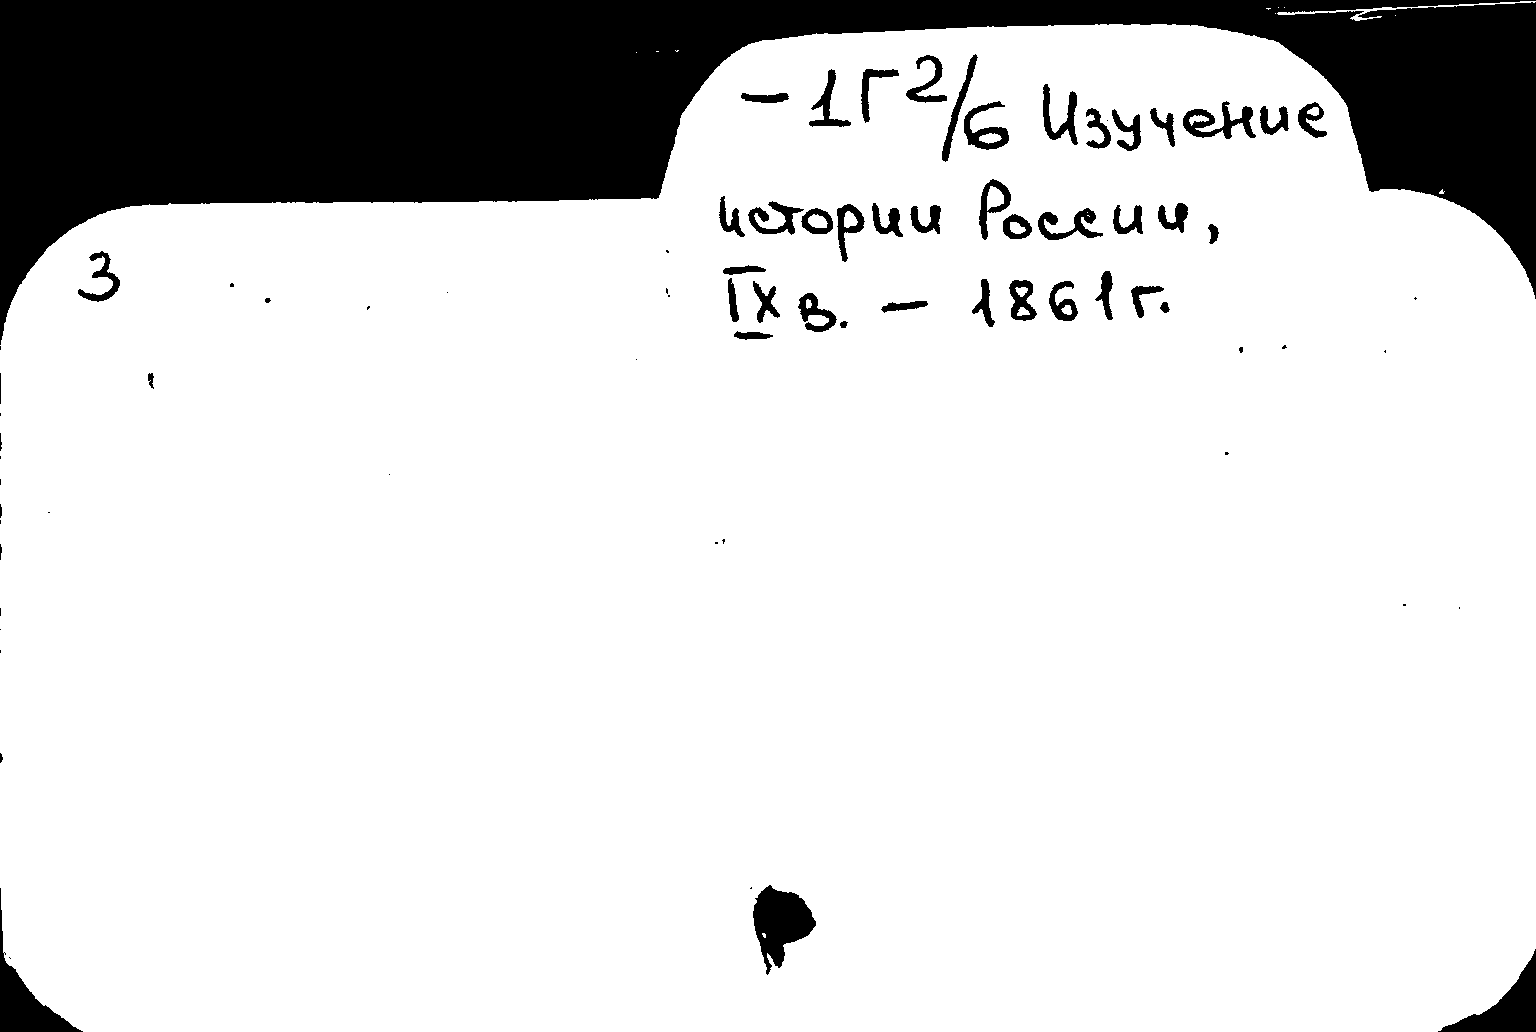 -1Г2/6 Изучение
истории России,
IX в. - 1861 г.
3